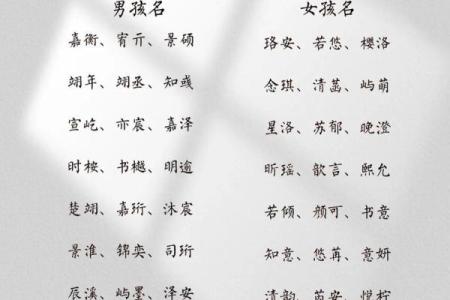 男孩名 女孩名
嘉衡、宥亓、景硕 珞安、若悠、樱洛
翊年、翊丞、知彧 念琪、清菡、屿萌
宣屹、亦宸、嘉泽 星洛、苏郁、晚澄
时桉、书樾、明逾 昕瑶、歆言、熙允
楚翊、嘉珩、沐宸 若倾、颜可、书意
景淮、锦奕、司珩 知意、悠苒、意妍
辰溪、屿墨、泽安 清韵、芮安、悦柠